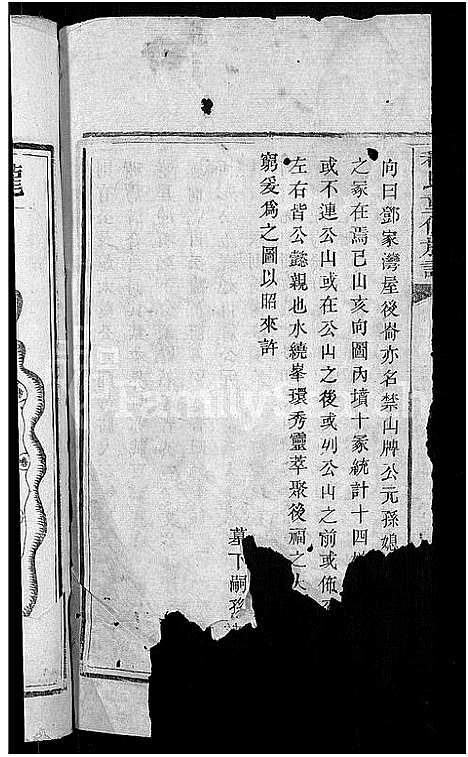 向曰鄧家灣屋後崙亦名禁山牌公元孫媳
之冢在焉己山亥向圖內墳十冢統計十四
或不連公山或在公山之後或列公山之前或佈
左右皆公懿親也水繞峯環秀靈萃聚後裔之大
窮爰為之圖以昭來許
墓下嗣孫
龍